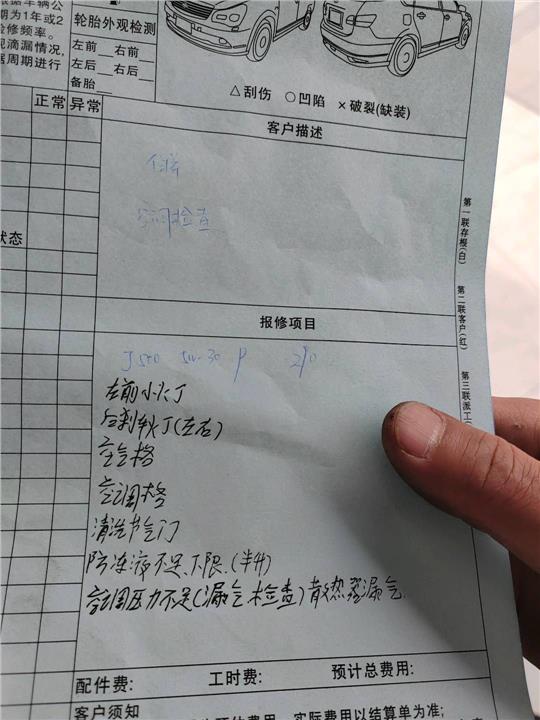 期为1年或2
检修频率。
现滴漏情况,
据周期进行
轮胎外观检测
左前__右前__
左后__右后__
备胎__
△刮伤 ○凹陷 ×破裂(缺装)
正常 异常
客户描述
保养
空调检查
状态
第一联存根(白)
第二联客户(红)
第三联派工
报修项目
5w-30
210
左前小灯
后刹车灯(左右)
空气格
空调格
清洗节气门
防冻液不足、下限.(半升)
空调压力不足(漏气检查)散热器漏气.
配件费: 工时费: 预计总费用:
客户须知
实际费用以结算单为准;